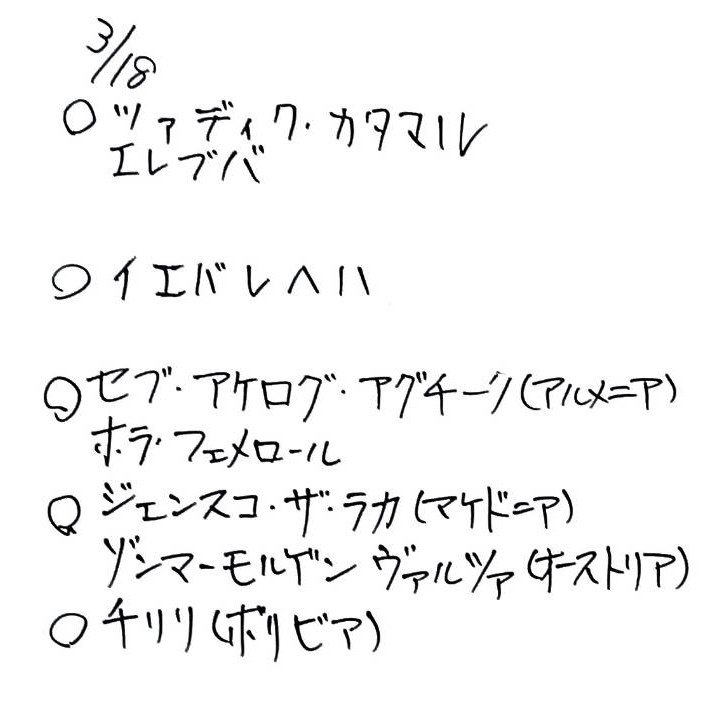 3/18
○ツァディク・カタマル
エレブバ
○イエバレヘハ
○セブ・アケログ・アグチーク(アルメニア)
ホラ・フェメロール
○ジェンスコ・ザ・ラカ(マケドニア)
ゾンマーモルゲン ヴァルツァ(オーストリア)
○チリリ(ボリビア)